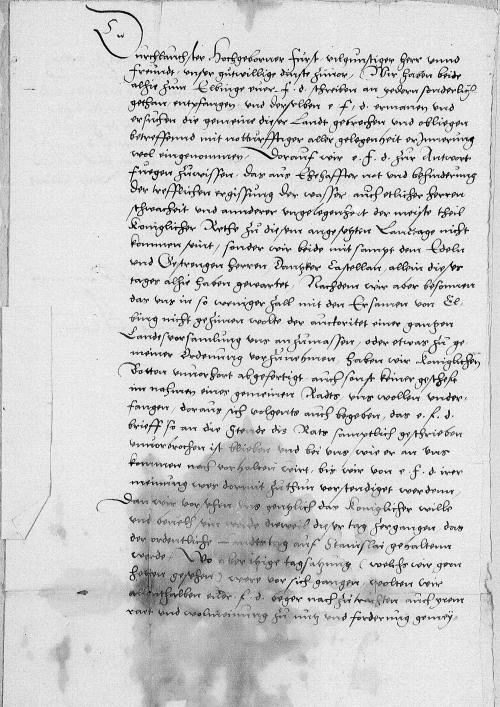 Durchlauchster Hochgeborner Furst vilgunstiger herr unnd
freundt, unser gutwillige dinste zuvor, Wir haben beide
alhie zum Elbinge ewer f. d. schreiben an jedern sonderlich
gethan, entpfangen, und derselben e. f. d. ermanen und
ersuchen die gemeine dieser Landt gebrechen und obliegen
betreffennd mit notturfftiger aller gelegenheit erInnerung
wol eingenommen, Dorauf wir e. f. d. zur Antwort
fuegen zuwissen, das aus Ehehaffter not und behinderung
der trefflichen ergissung der wasser, auch etlicher herren
schwacheit und annderer ungelegenheit der meiste theil
Koniglicher Rethe zu diesem angesetzten Landtage nicht
kommen seint, sonder wir beide mit sampt dem Edeln
und Gestrengen herren Dantzker Castellan, allein dieses
tages alhie haben gewartet, Nachdem wir aber besonnen
das uns in so weniger zall mit den Ersamen von El-
bing nicht gezimen wolte der auctoritet einer gantzen
Landesversamlung uns anzumassen, oder etwas zu ge-
meiner Ordenung vorzunehmen, haben wir Koniglichen
Botten unverhort abgefertigt, auch sonst keiner geschefte
im nahmen eines gemeinen Radts uns wollen under-
fangen, doraus sich volgents auch begeben, das e. f. d.
brieff so an die Stende des Rats samptlich geschrieben
unvorbrochen ist blieben und bei uns, wie er an uns
kommen noch vorhalten wirt, bis wir von e. f. d. irer
meinung wes dormit zuthun vorstendiget werdenn,
Dan wir vor uns gentzlich das Koniglicher wille
und bevelh die weil dieser tag zergangen das
der ordentliche Landtag auf Stanislai gehaltenn
werde, Wo aber itzige tagsatzung (welche wir gern
hetten gesehen) were vor sich gangen, wolten wir
allenthalben ewer f. d. beger nach zutrachten, auch iren
radt und wolmeinung zu nutz und forderung gemey-